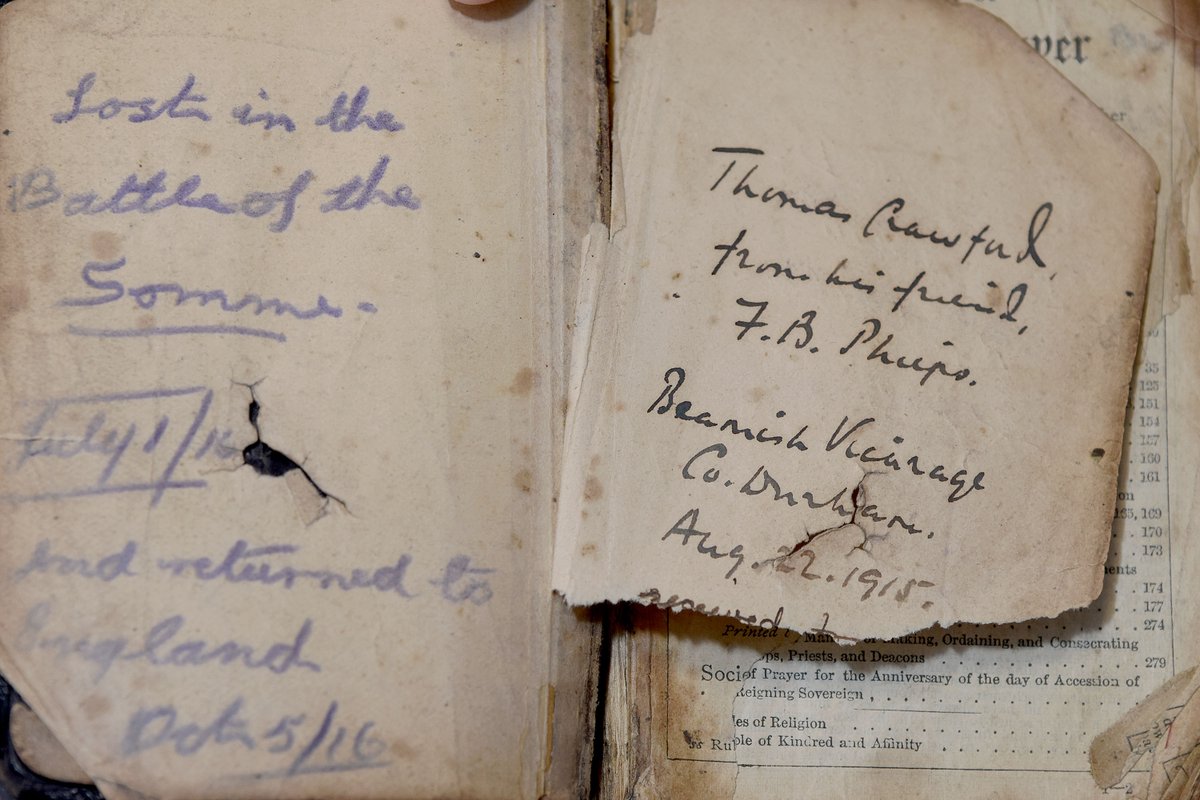 Lost in the
Battle of the
Somme -
July 1/16
and returned to
England
Oct 5/16
Thomas Crawford,
from his friend,
F. B. Phelps.
Beamish Vicarage
Co. Durham.
Aug. 22. 1915.
received
yer
er
35
125
151
154
157
160
161
on
165, 169
170
173
ents
174
177
274
Printed
Making, Ordaining, and Consecrating
ops, Priests, and Deacons 279
Socie
of Prayer for the Anniversary of the day of Accession of
Reigning Sovereign
les of Religion
ble of Kindred and Affinity